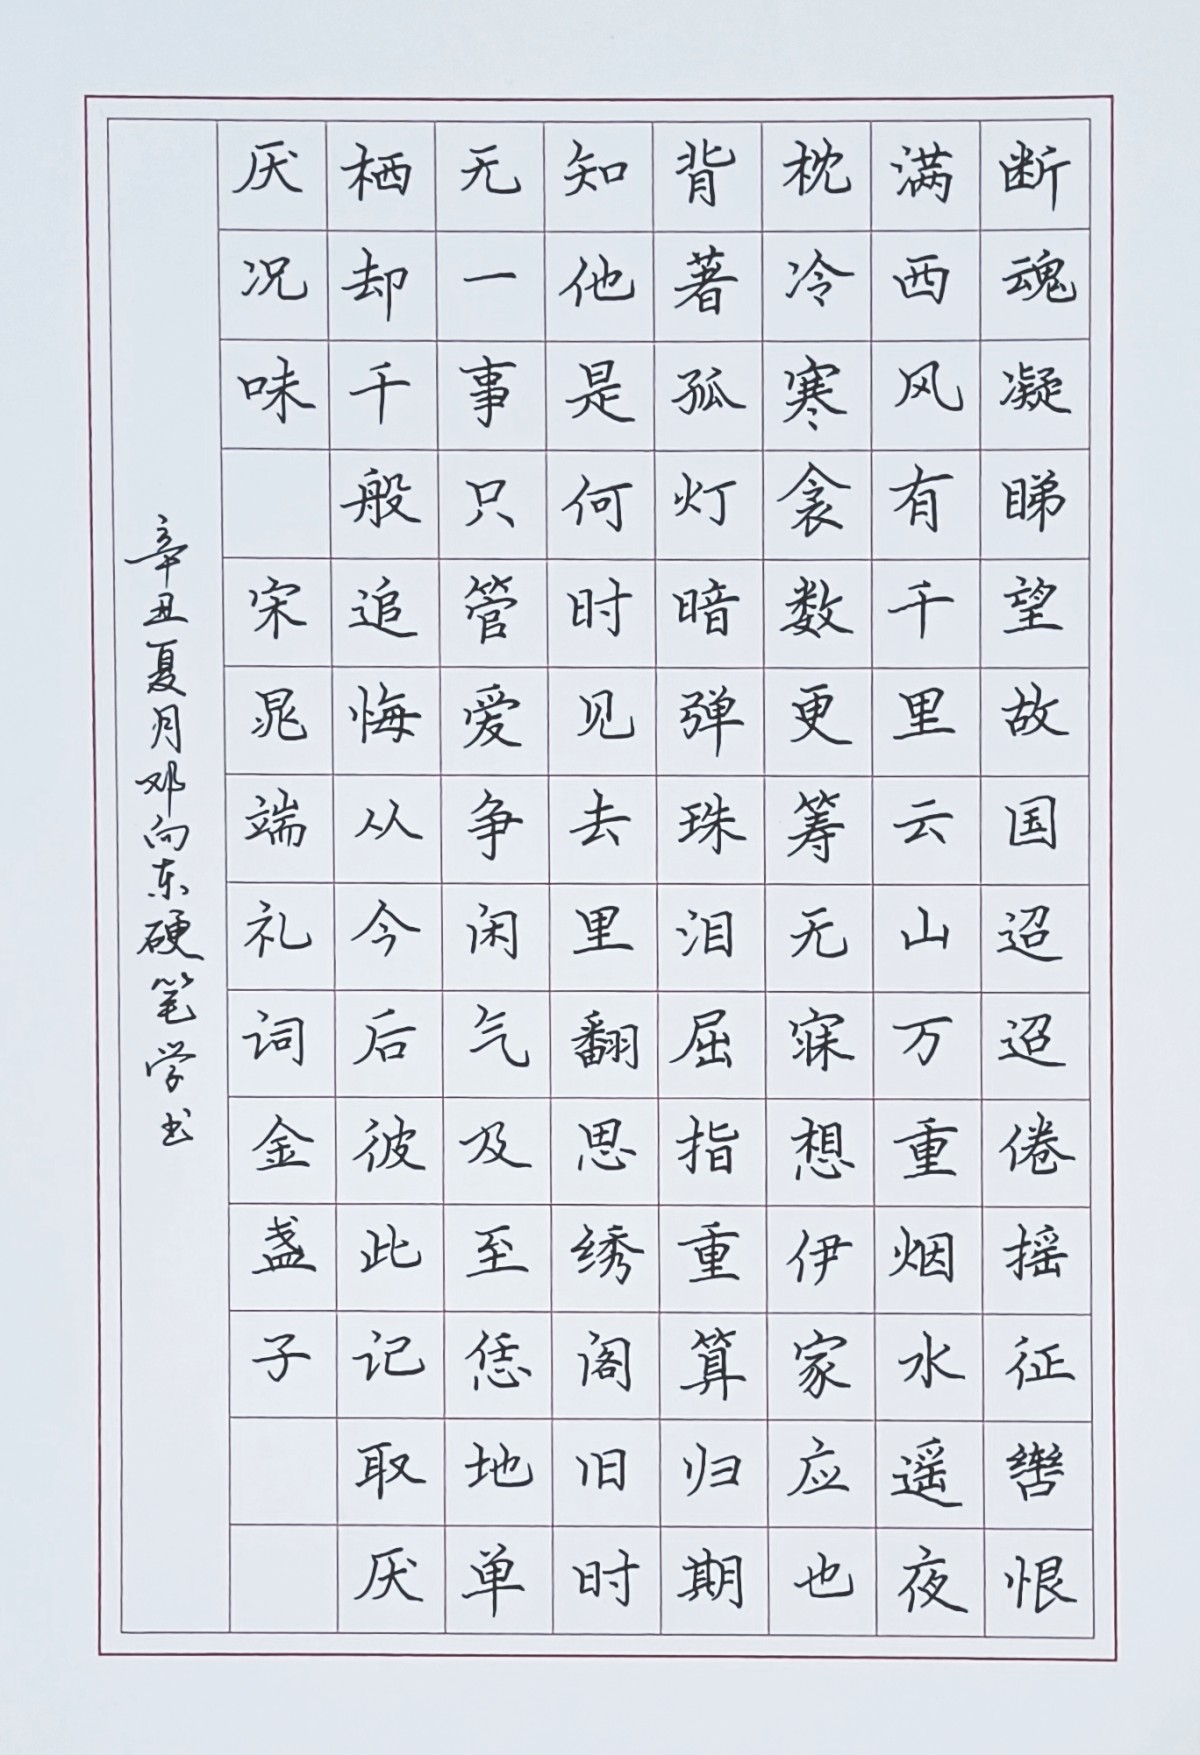 断魂凝睇望故国迢迢倦摇征辔恨
满西风有千里云山万重烟水遥夜
枕冷寒衾数更筹无寐想伊家应也
背著孤灯暗弹珠泪屈指重算归期
知他是何时见去里翻思绣阁旧时
无一事只管爱争闲气及至恁地单
栖却千般追悔从今后彼此记取厌
厌况味 宋晁端礼词金盏子
辛丑夏月邓向东硬笔学书